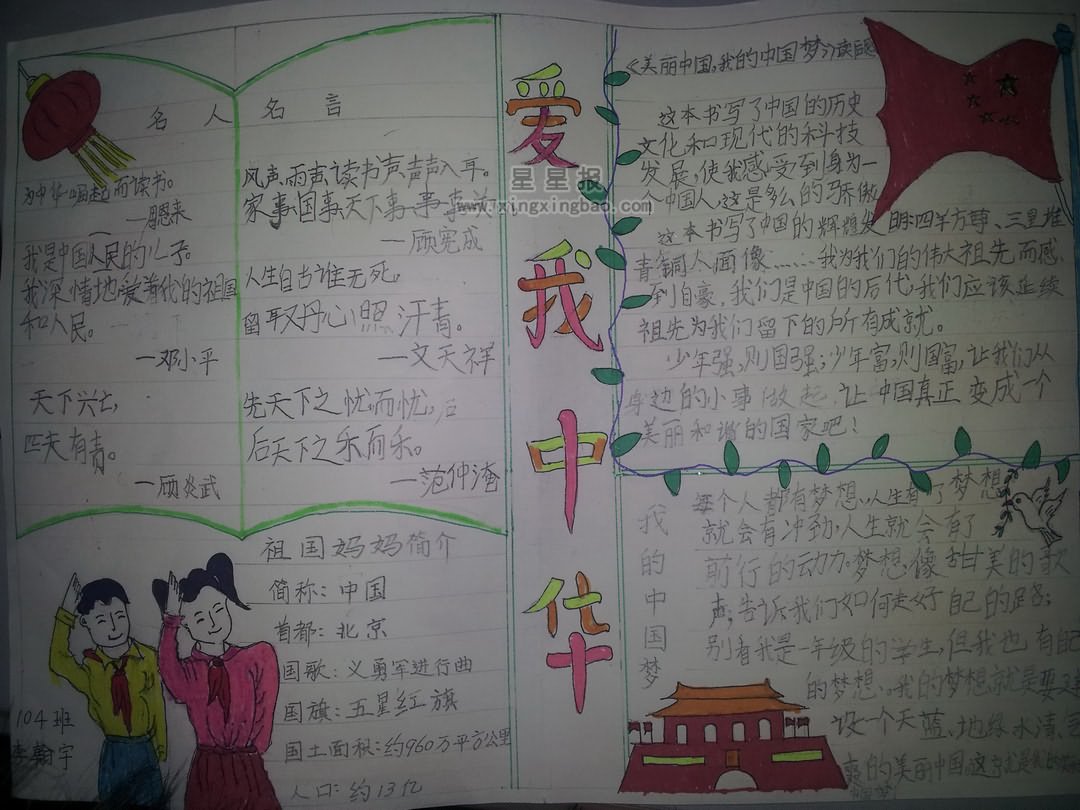 名人名言
为中华崛起而读书。
—周恩来
我是中国人民的儿子。
我深情地爱着我的祖国
和人民。
—邓小平
天下兴亡,
匹夫有责。
—顾炎武
风声,雨声读书声声声入耳。
家事,国事,天下事事事
—顾宪成
人生自古谁无死,
留取丹心照汗青。
—文天祥
先天下之忧而忧,后
后天下之乐而乐。
—范仲淹
祖国妈妈简介
简称:中国
首都:北京
国歌:义勇军进行曲
国旗:五星红旗
国土面积:约960万平方公里
人口:约13亿
104班
爱我中华
星星报
www.xingxingbao.com
《美丽中国,我的中国梦》读
这本书写了中国的历史
文化和现代的科技
发展,使我感受到身为一
个中国人,这是多么的骄傲
这本书写了中国的辉煌发明:四羊方尊、三星堆
青铜人面像……我为我们的伟大祖先而感
到自豪,我们是中国的后代,我们应该延续
祖先为我们留下的所有成就。
少年强,则国强;少年富,则国富,让我们从
身边的小事做起,让中国真正变成一个
美丽和谐的国家吧!
我的中国梦
每个人都有梦想,人生有了梦想
就会有冲劲,人生就会有了
前行的动力。梦想像甜美的歌
声,告诉我们如何走好自己的路;
别看我是一年级的学生,但我也有自己
的梦想,我的梦想就是要
设一个天蓝、地绿、水清、
的美丽中国,这